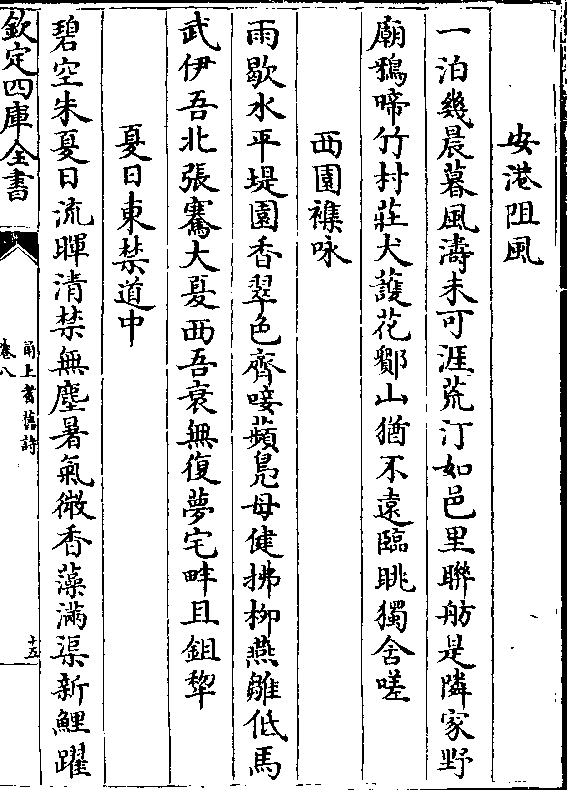 安港阻風
一泊幾晨暮風濤未可涯荒汀如邑里聯舫是隣家野
廟鵶啼竹村莊犬護花鄮山猶不遠臨眺獨含嗟
西園襍咏
雨歇水平堤園香翠色齊唼蘋鳬母健拂柳燕雛低馬
武伊吾北張騫大夏西吾衰無復夢宅畔且鉏犂
夏日東禁道中
碧空朱夏日流暉清禁無塵暑氣微香藻滿渠新鯉躍
欽定四庫全書
甬上耆舊詩
卷八
十五